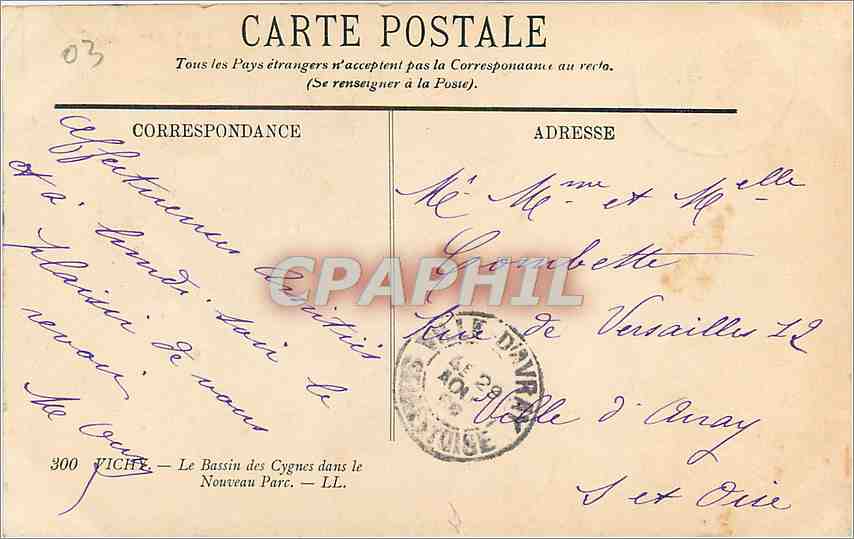 03
CARTE POSTALE
Tous les Pays étrangers n'acceptent pas la Correspondance au recto.
(Se renseigner à la Poste).
CORRESPONDANCE
Affectueuses amitiés
et à lundi soir le
plaisir de vous
revoir
Me
ADRESSE
Mr Mme et Melle
Combette
Rue de Versailles 12
Ville d'Avray
S et Oise
CPAPHIL
VILLE D'AVRAY
4E 29
AOU
SEINE ET OISE
300 VICHY. — Le Bassin des Cygnes dans le
Nouveau Parc. — LL.